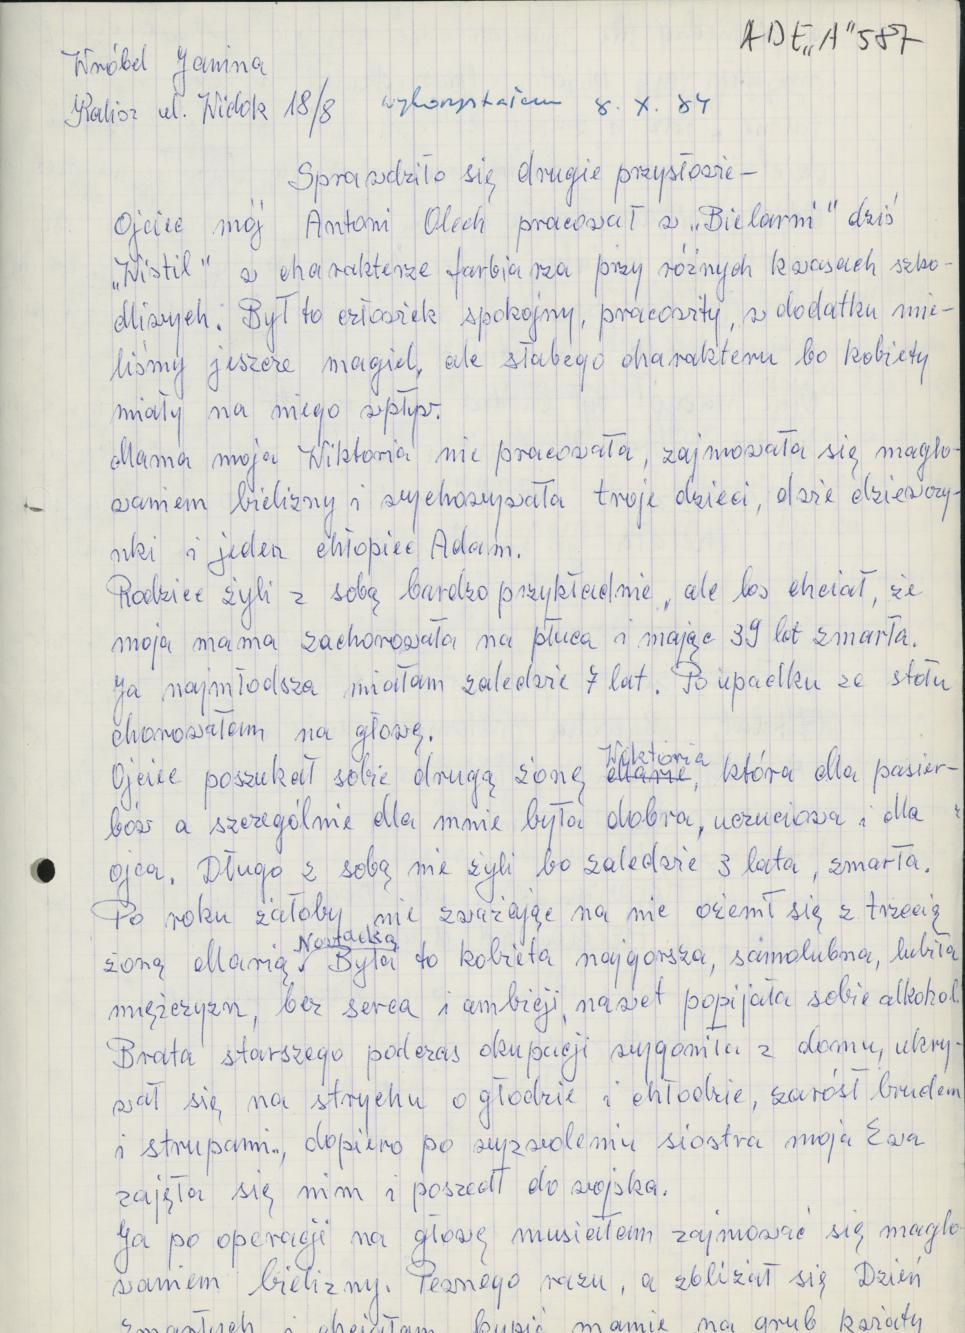 ADE „A" 587
Wróbel Janina
Kalisz ul. Widok 18/8 wykorzystałem 8. X. 84
Sprawdziło się drugie przysłowie –
Ojciec mój Antoni Olech pracował w „Bielarni" dziś
„Wistil" w charakterze farbiarza przy różnych kwasach szko-
dliwych. Był to człowiek spokojny, pracowity, w dodatku mie-
liśmy jeszcze magiel, ale słabego charakteru bo kobiety
miały na niego wpływ.
Mama moja Wiktoria nie pracowała, zajmowała się maglo-
waniem bielizny i wychowywała troje dzieci, dwie dziewczy-
nki i jeden chłopiec Adam.
Rodzice żyli z sobą bardzo przykładnie, ale los chciał, że
moja mama zachorowała na płuca i mając 39 lat zmarła.
Ja najmłodsza miałam zaledwie 7 lat. Po upadku ze stołu
chorowałam na głowę.
Ojciec poszukał sobie drugą żonę Wiktorię, która dla pasier-
bów a szczególnie dla mnie była dobra, uczuciowa i dla
ojca. Długo z sobą nie żyli bo zaledwie 3 lata, zmarła.
Po roku żałoby nie zważając na nic ożenił się z trzecią
żoną Marią Nowacką. Była to kobieta najgorsza, samolubna, lubiła
mężczyzn, bez serca i ambicji, nawet popijała sobie alkohol.
Brata starszego podczas okupacji wygoniła z domu, ukry-
wał się na strychu o głodzie i chłodzie, zarósł brudem
i strupami, dopiero po wyzwoleniu siostra moja Ewa
zajęła się nim i poszedł do wojska.
Ja po operacji na głowę musiałam zajmować się maglo-
waniem bielizny. Pewnego razu, a zbliżał się Dzień
Zmarłych i chciałam kupić mamie na grób kwiaty